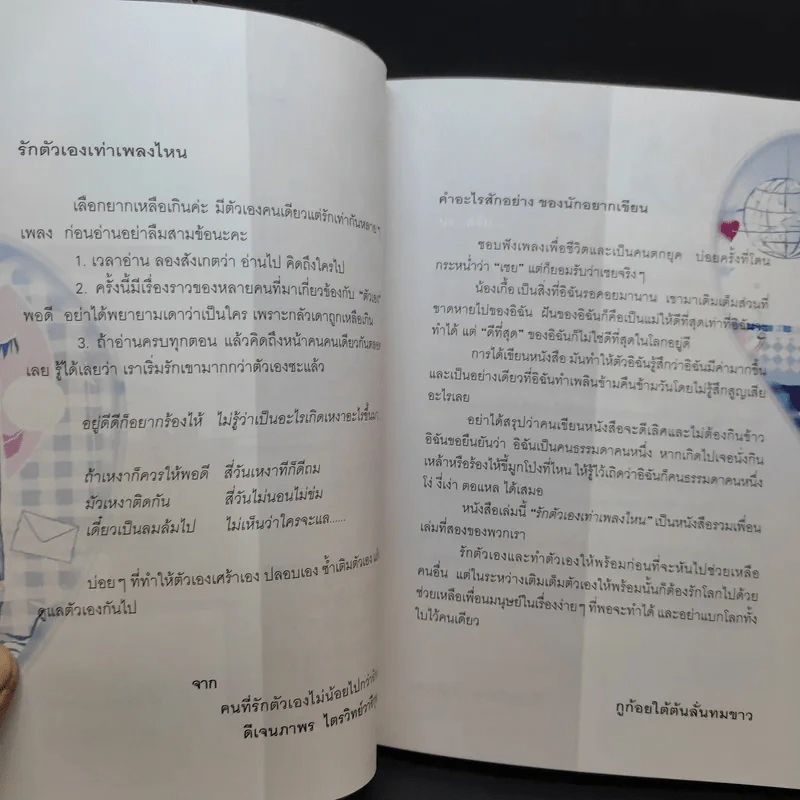 รักตัวเองเท่าเพลงไหน
เลือกยากเหลือเกินค่ะ มีตัวเองคนเดียวแต่รักเท่ากันหลายๆ
เพลง ก่อนอ่านอย่าลืมสามข้อนะคะ
1. เวลาอ่าน ลองสังเกตว่า อ่านไป คิดถึงใครไป
2. ครั้งนี้มีเรื่องราวของหลายคนที่มาเกี่ยวข้องกับ "ตัวเอง"
พอดี อย่าได้พยายามเดาว่าเป็นใคร เพราะกลัวเดาถูกเหลือเกิน
3. ถ้าอ่านครบทุกตอน แล้วคิดถึงหน้าคนคนเดียวกันตลอด
เลย รู้ได้เลยว่า เราเริ่มรักเขามากกว่าตัวเองซะแล้ว
อยู่ดีดีก็อยากร้องไห้ ไม่รู้ว่าเป็นอะไรเกิดเหงาอะไรขึ้นมา
ถ้าเหงาก็ควรให้พอดี สี่วันเหงาทีก็ดีถม
มัวเหงาติดกัน สี่วันไม่นอนไม่ข่ม
เดี๋ยวเป็นลมล้มไป ไม่เห็นว่าใครจะแล......
บ่อยๆ ที่ทำให้ตัวเองเศร้าเอง ปลอบเอง ซ้ำเติมตัวเอง แล้วก็
ดูแลตัวเองกันไป
จาก
คนที่รักตัวเองไม่น้อยไปกว่า
ดีเจนภาพร ไตรวิทย์วารีกุล
คำอะไรสักอย่าง ของนักอยากเขียน
ชอบฟังเพลงเพื่อชีวิตและเป็นคนตกยุค บ่อยครั้งที่โดน
กระหน่ำว่า "เชย" แต่ก็ยอมรับว่าเชยจริงๆ
น้องเกื้อ เป็นสิ่งที่อิฉันรอคอยมานาน เขามาเติมเต็มส่วนที่
ขาดหายไปของอิฉัน ฝันของอิฉันก็คือเป็นแม่ให้ดีที่สุดเท่าที่อิฉันจะ
ทำได้ แต่ "ดีที่สุด" ของอิฉันก็ไม่ใช่ดีที่สุดในโลกอยู่ดี
การได้เขียนหนังสือ มันทำให้ตัวอิฉันรู้สึกว่าอิฉันมีค่ามากขึ้น
และเป็นอย่างเดียวที่อิฉันทำเพลินข้ามคืนข้ามวันโดยไม่รู้สึกสูญเสีย
อะไรเลย
อย่าได้สรุปว่าคนเขียนหนังสือจะดีเลิศและไม่ต้องกินข้าว
อิฉันขอยืนยันว่า อิฉันเป็นคนธรรมดาคนหนึ่ง หากเกิดไปเจอนั่งกิน
เหล้าหรือร้องไห้ขี้มูกโป่งที่ไหน ให้รู้ไว้เถิดว่าอิฉันก็คนธรรมดาคนหนึ่ง
โง่ งี่เง่า ตอแหล ได้เสมอ
หนังสือเล่มนี้ "รักตัวเองเท่าเพลงไหน" เป็นหนังสือรวมเพื่อน
เล่มที่สองของพวกเรา
รักตัวเองและทำตัวเองให้พร้อมก่อนที่จะหันไปช่วยเหลือ
คนอื่น แต่ในระหว่างเติมเต็มตัวเองให้พร้อมนั้นก็ต้องรักโลกไปด้วย
ช่วยเหลือเพื่อนมนุษย์ในเรื่องง่ายๆ ที่พอจะทำได้ และอย่าแบกโลกทั้ง
ใบไว้คนเดียว
กูก้อยใต้ต้นลั่นทมขาว